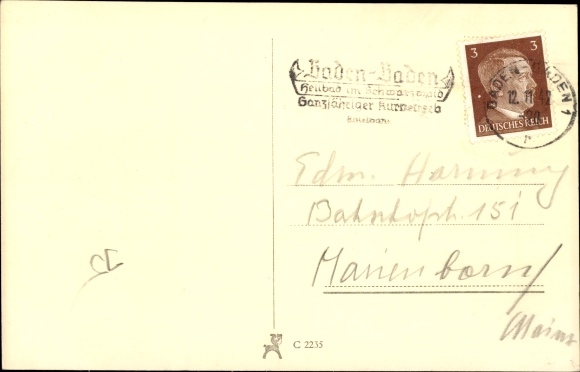 Baden-Baden
Heilbad im Schwarzwald
Ganzjähriger Kurbetrieb
3 3
DEUTSCHES REICH
BADEN-BADEN 1
12.11.42
r
Edm. Hornung
Bahnhofstr. 151
Marienborn/
Mainz
C 2235